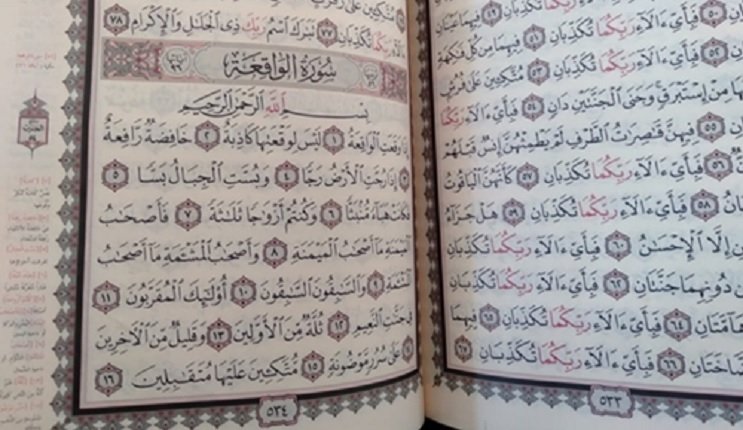 فَبِأَيِّ ءَالَآءِ رَبِّكُمَا تُكَذِّبَانِ ٤٩ فِيهِمَا عَيْنَانِ
٥٠ فَبِأَيِّ ءَالَآءِ رَبِّكُمَا تُكَذِّبَانِ ٥١ فِيهِمَا مِن كُلِّ فَٰكِهَةٍ
٥٢ فَبِأَيِّ ءَالَآءِ رَبِّكُمَا تُكَذِّبَانِ ٥٣ مُتَّكِـِٔينَ عَلَىٰ فُرُشٍ
مِنْ إِسْتَبْرَقٍ وَجَنَى ٱلْجَنَّتَيْنِ دَانٍ ٥٤ فَبِأَيِّ ءَالَآءِ رَبِّكُمَا
٥٥ فِيهِنَّ قَٰصِرَٰتُ ٱلطَّرْفِ لَمْ يَطْمِثْهُنَّ إِنسٌ قَبْلَهُمْ
٥٦ فَبِأَيِّ ءَالَآءِ رَبِّكُمَا تُكَذِّبَانِ ٥٧ كَأَنَّهُنَّ ٱلْيَاقُوتُ
٥٨ فَبِأَيِّ ءَالَآءِ رَبِّكُمَا تُكَذِّبَانِ ٥٩ هَلْ جَزَآءُ
إِلَّا ٱلْإِحْسَٰنُ ٦٠ فَبِأَيِّ ءَالَآءِ رَبِّكُمَا تُكَذِّبَانِ
دُونِهِمَا جَنَّتَانِ ٦٢ فَبِأَيِّ ءَالَآءِ رَبِّكُمَا تُكَذِّبَانِ
٦٤ فَبِأَيِّ ءَالَآءِ رَبِّكُمَا تُكَذِّبَانِ ٦٥ فِيهِمَا
٦٦ فَبِأَيِّ ءَالَآءِ رَبِّكُمَا تُكَذِّبَانِ ٦٧
٥٣٣
مُتَّكِـِٔينَ عَلَىٰ رَفْرَفٍ
رَبِّكُمَا تُكَذِّبَانِ ٧٧ تَبَٰرَكَ ٱسْمُ رَبِّكَ ذِى ٱلْجَلَٰلِ وَٱلْإِكْرَامِ ٧٨
سُورَةُ الوَاقِعَةِ
بِسْمِ ٱللَّهِ ٱلرَّحْمَٰنِ ٱلرَّحِيمِ
إِذَا وَقَعَتِ ٱلْوَاقِعَةُ ١ لَيْسَ لِوَقْعَتِهَا كَاذِبَةٌ ٢ خَافِضَةٌ رَّافِعَةٌ
٣ إِذَا رُجَّتِ ٱلْأَرْضُ رَجًّا ٤ وَبُسَّتِ ٱلْجِبَالُ بَسًّا ٥
فَكَانَتْ هَبَآءً مُّنۢبَثًّا ٦ وَكُنتُمْ أَزْوَٰجًا ثَلَٰثَةً ٧ فَأَصْحَٰبُ
ٱلْمَيْمَنَةِ مَآ أَصْحَٰبُ ٱلْمَيْمَنَةِ ٨ وَأَصْحَٰبُ ٱلْمَشْـَٔمَةِ مَآ أَصْحَٰبُ
ٱلْمَشْـَٔمَةِ ٩ وَٱلسَّٰبِقُونَ ٱلسَّٰبِقُونَ ١٠ أُو۟لَٰٓئِكَ ٱلْمُقَرَّبُونَ ١١
فِى جَنَّٰتِ ٱلنَّعِيمِ ١٢ ثُلَّةٌ مِّنَ ٱلْأَوَّلِينَ ١٣ وَقَلِيلٌ مِّنَ ٱلْءَاخِرِينَ
١٤ عَلَىٰ سُرُرٍ مَّوْضُونَةٍ ١٥ مُّتَّكِـِٔينَ عَلَيْهَا مُتَقَٰبِلِينَ ١٦
٥٣٤